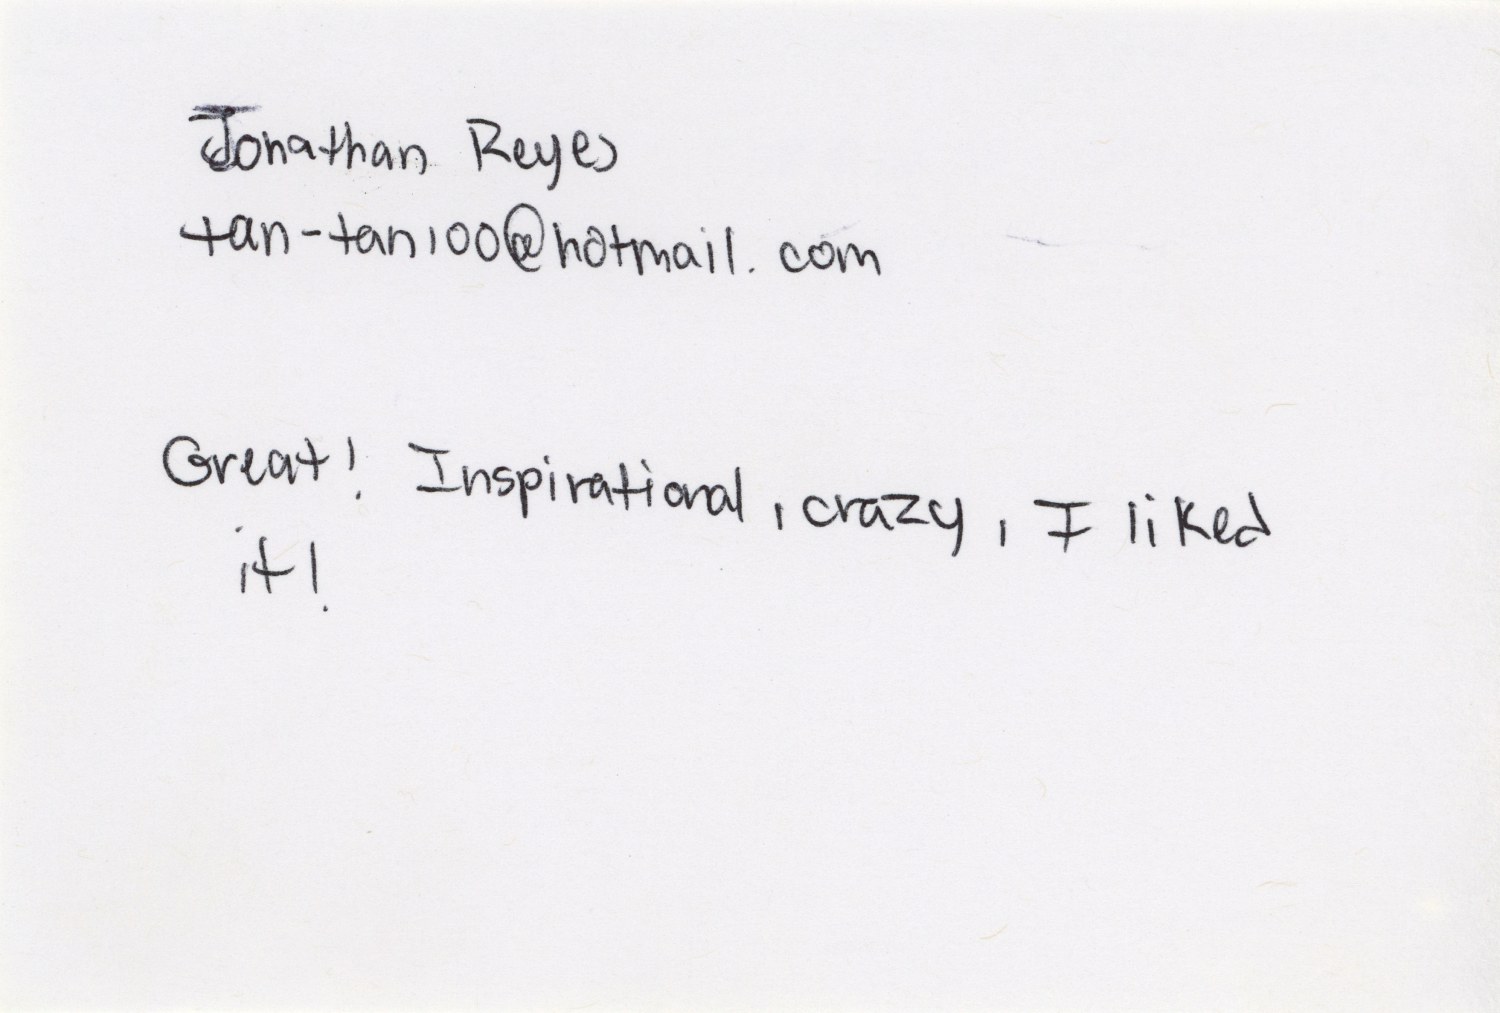 Jonathan Reyes
tan-tan100@hotmail.com
Great! Inspirational, crazy, I liked
it!